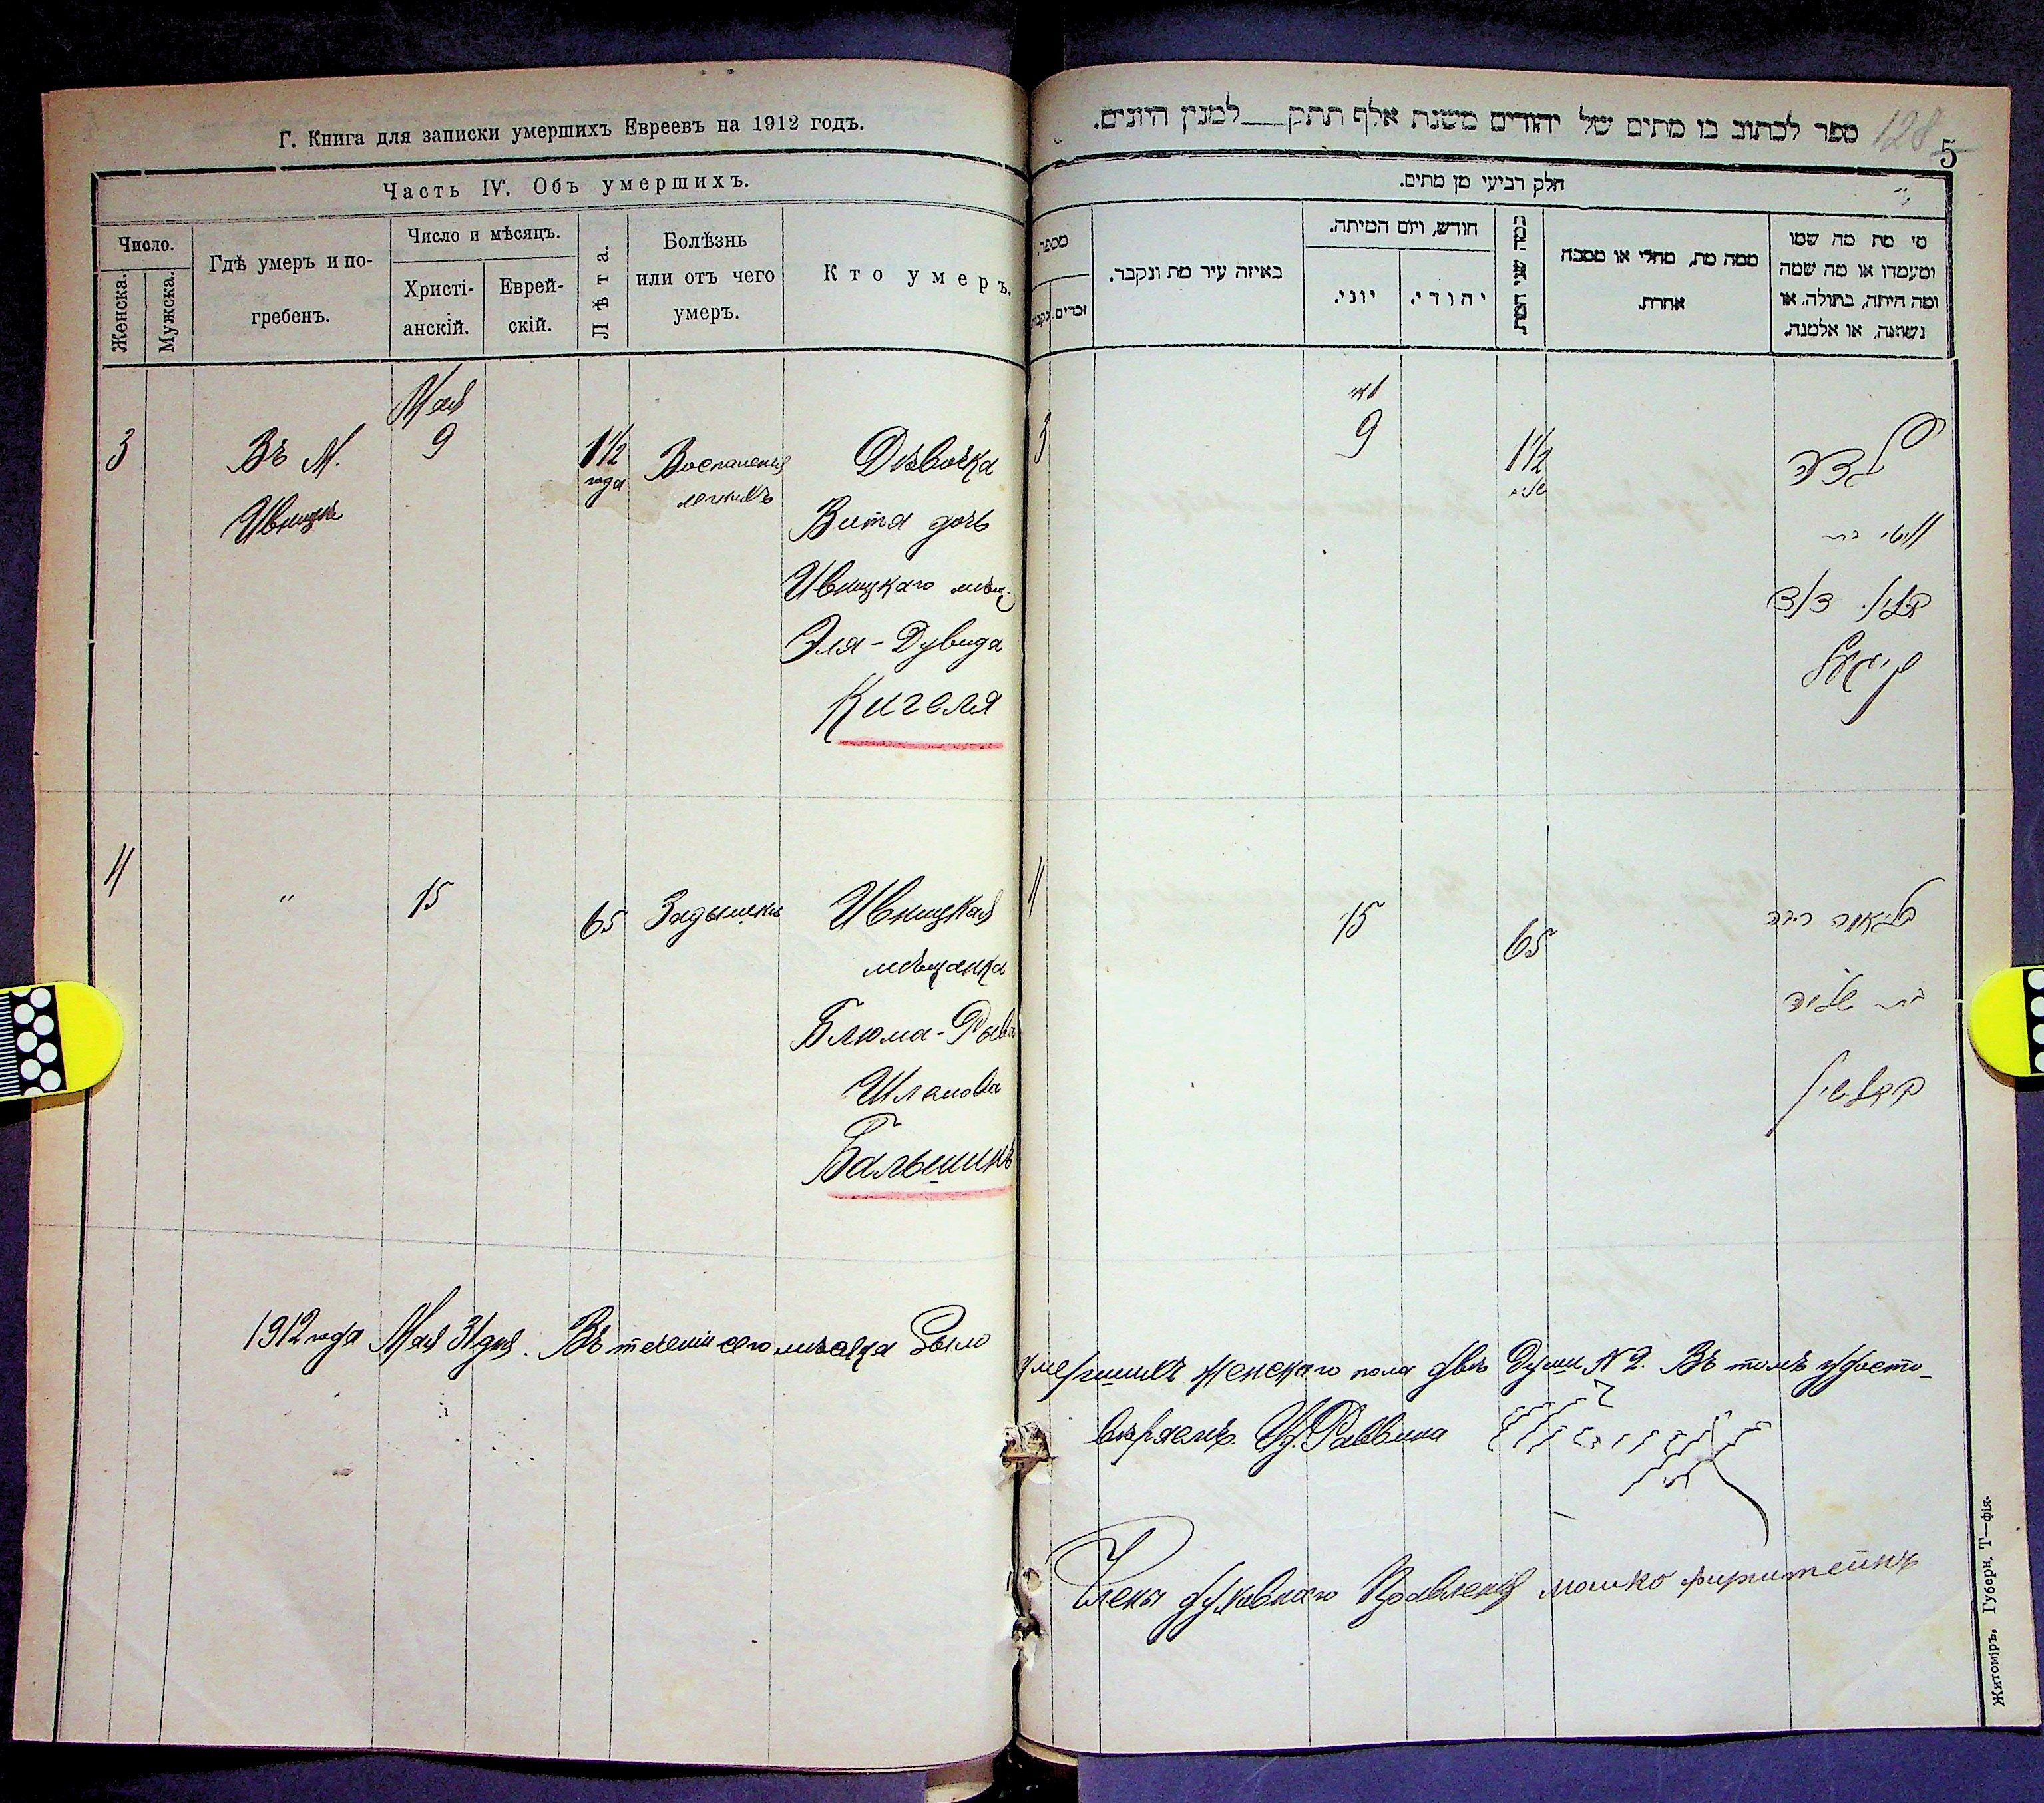 Г. Книга для записки умершихъ Евреевъ на 1912 годъ.
Часть IV. Объ умершихъ.
Число.
Женска.
Мужска.
Гдѣ умеръ и по-
гребенъ.
Число и мѣсяцъ.
Христі-
анскій.
Еврей-
скій.
Лѣта.
Болѣзнь
или отъ чего
умеръ.
Кто умеръ.
Мая
3
Въ М.
Ивницѣ
9
1 1/2
года
Воспаленія
легкихъ
Дѣвочка
Витя дочь
Ивницкаго мѣщ.
Эля-Дувида
Кигеля
4
"
15
65
Задышки
Ивницкая
мѣщанка
Блюма-Рыва
Шлемова
Бальшинъ
1912 года Мая 31 дня. Въ теченіи сего мѣсяца было
128
5
ספר לכתוב בו מתים של יהודים משנת אלף תתק___למנין היונים.
חלק רביעי מן מתים.
מי מת מה שמו
ומעמדו או מה שמה
ומה היתה, בתולה, או
נשואה, או אלמנה.
ממה מת, מחלי או מסבה
אחרת.
כמה שני המת.
חודש, ויום המיתה.
יהודי.
יוני.
באיזה עיר מת ונקבר.
מספר.
זכרים.
נקבות
מאי
3
9
1 1/2
ילדה
בת
4
15
65
בת
умершихъ женскаго пола двѣ души № 2. Въ томъ удосто-
вѣряемъ. И. д. Раввина
Члены духовнаго Правленія мошко
Житоміръ, Губерн. Т—фія.